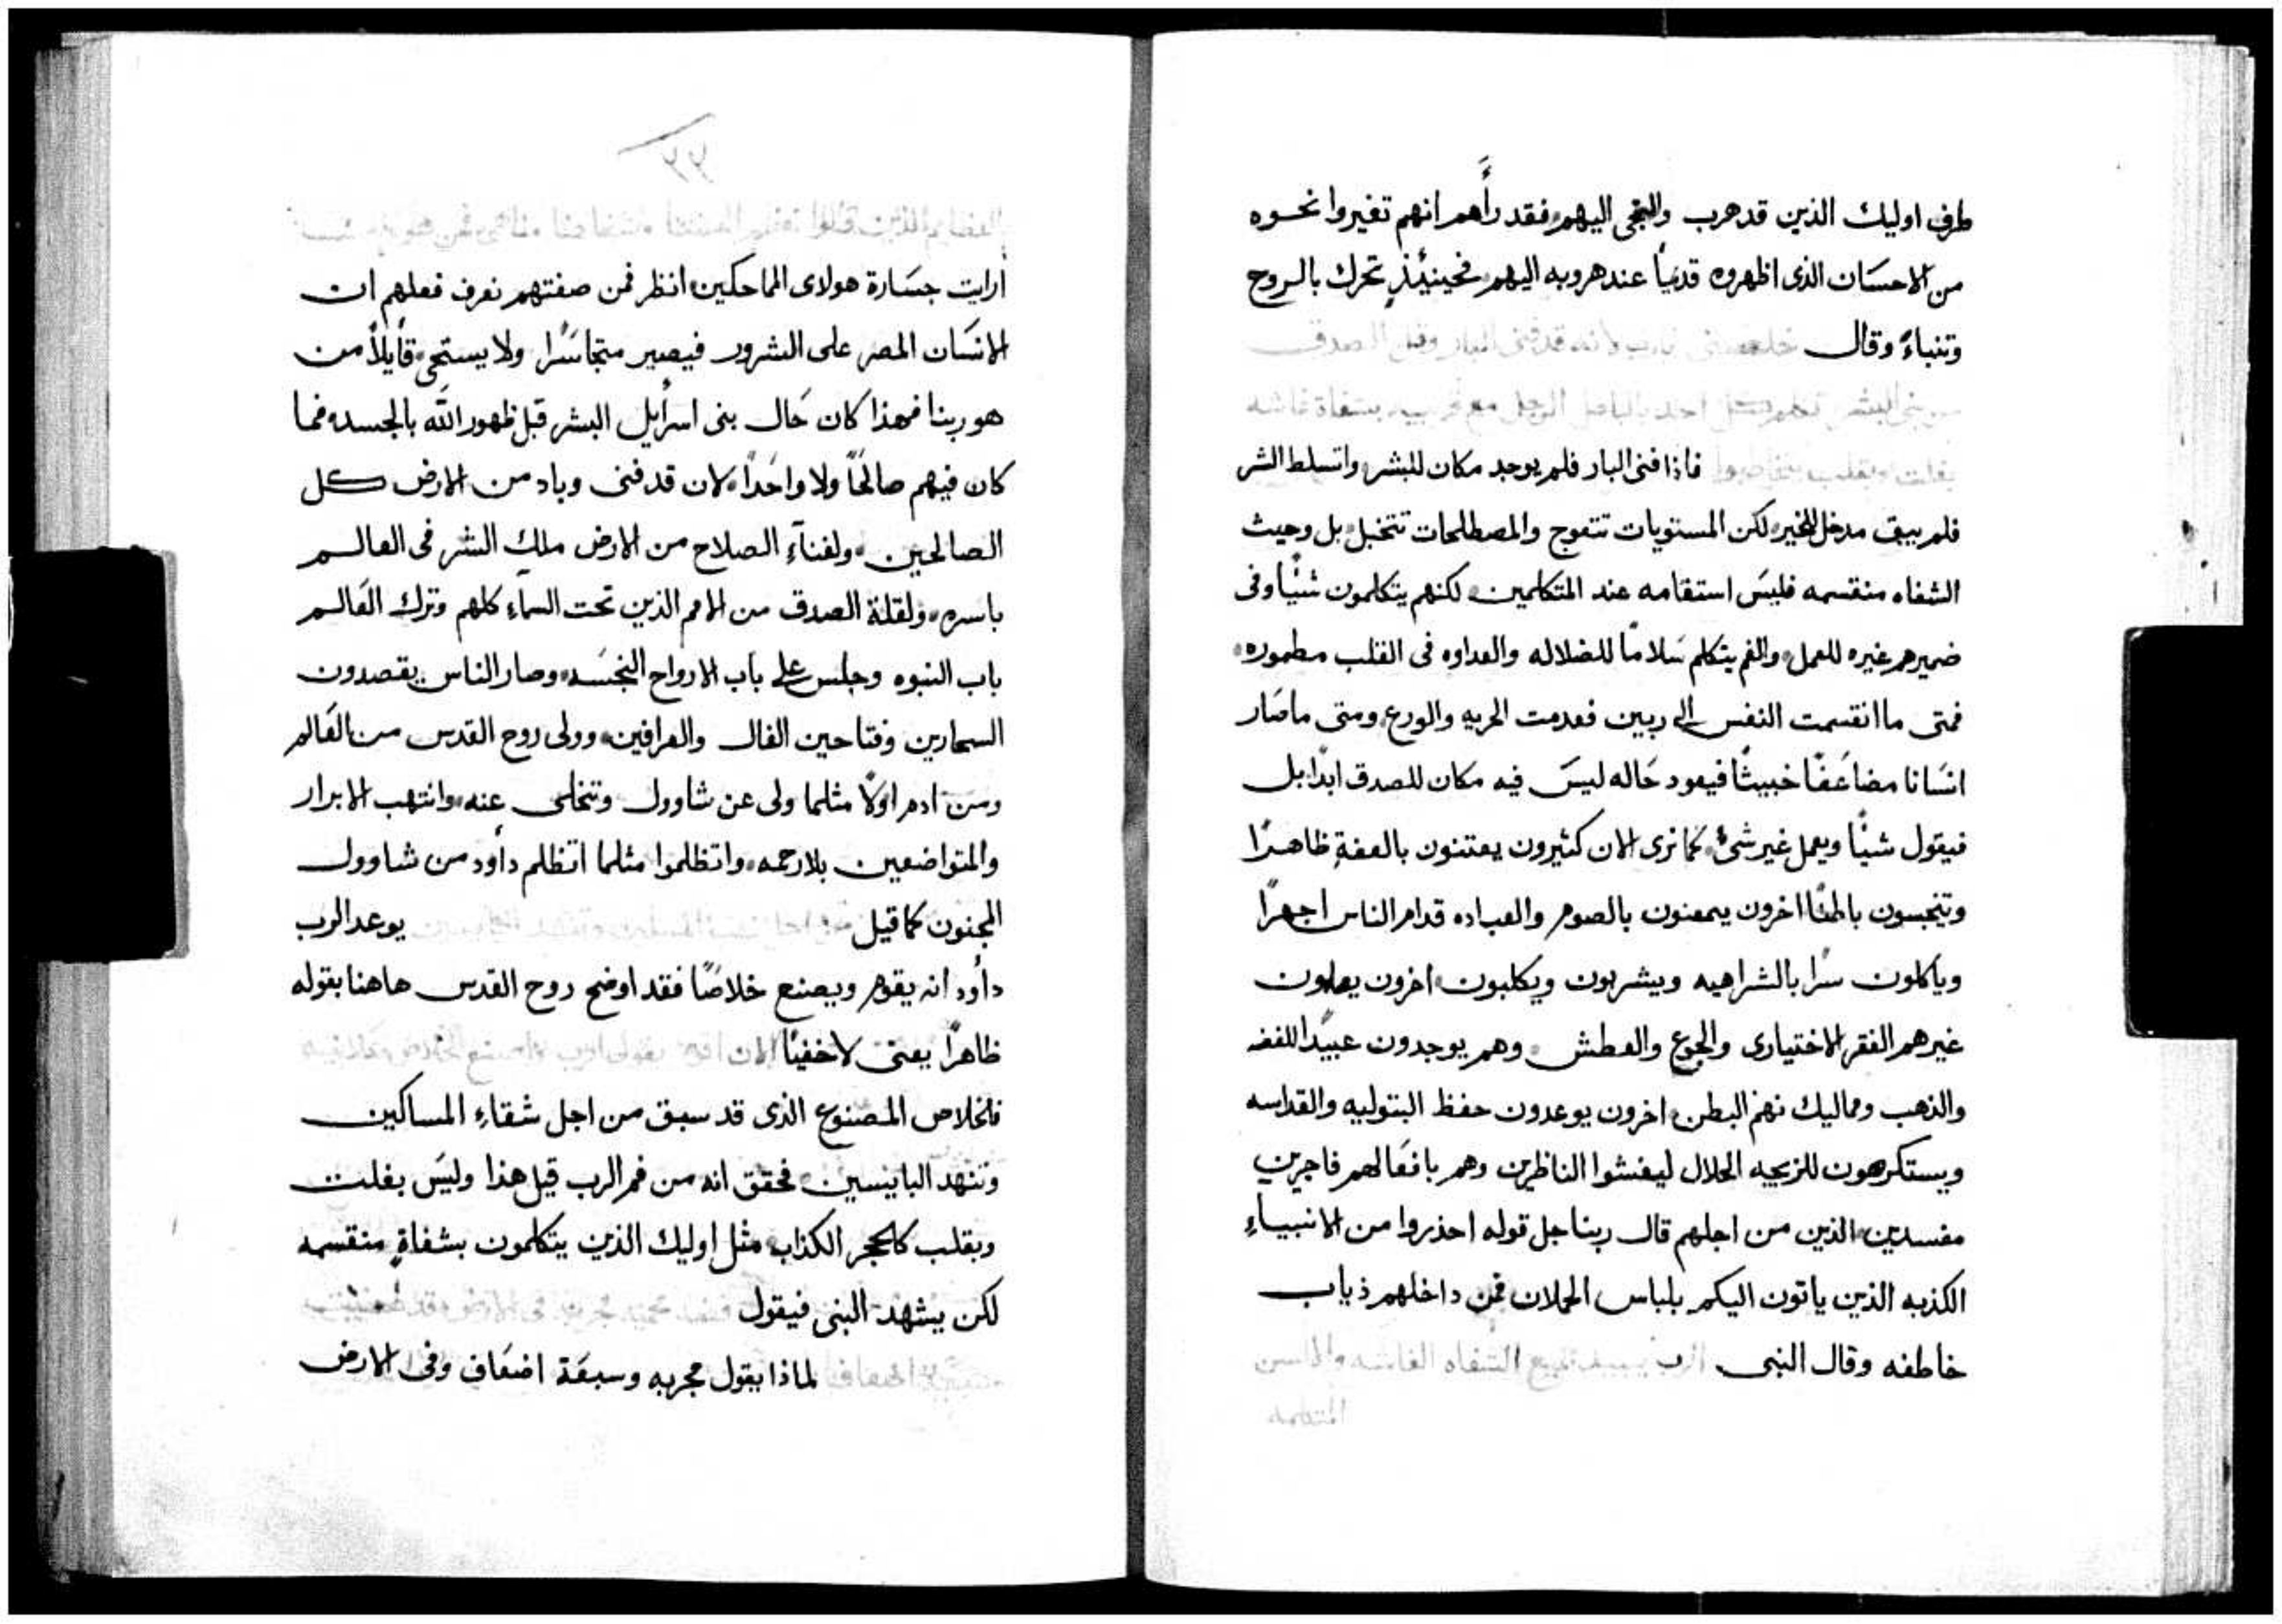 طرف اوليك الذين قد هرب والتجى اليهم فقد رأهم انهم تغيروا نحوه
من الاحسان الذى اظهروه قديماً عند هروبه اليهم فحينيئذٍ تحرك بالروح
وتنباءً وقال خلصنى يارب لانه قد فنى البار وقل الصدق
من بنى البشر تكلم كل احد بالباطل الرجل مع قريبه بشفاة غاشه
بقلب وبقلب فاذا فنى البار فلم يوجد مكان للبشر واتسلط الشر
فلم يبق مدخل للخير لكن المستويات تتعوج والمصطلحات تتخبل بل وحيث
الشفاه منقسمه فليس استقامه عند المتكلمين لكنهم يتكلمون شئياً وفى
ضميرهم غيره للعمل والفم يتكلم سلاماً للضلاله والعداوه فى القلب مطموره
فمتى ما انقسمت النفس الى ربين فعدمت الحريه والورع ومتى ما صار
انسانا مضاعفاً خبيثاً فيعود حاله ليس فيه مكان للصدق ابداً بل
فيقول شيئاً ويعمل غير شئ كما نرى الان كثيرون يعتنون بالعفة ظاهراً
وتنجسون باطناً اخرون يمعنون بالصوم والعباده قدام الناس اجهراً
وياكلون سراً بالشراهيه ويشربون ويكلبون اخرون يعلمون
غيرهم الفقر الاختيارى والجوع والعطش وهم يوجدون عبيداً للفضه
والذهب ومماليك نهم البطن اخرون يوعدون حفظ البتوليه والقداسه
ويستكرهون للزيجه الحلال ليغشوا الناظرين وهم بافعالهم فاجرين
مفسدين الذين من اجلهم قال ربنا جل قوله احذروا من الانبياءِ
الكذبه الذين ياتون اليكم بلباس الحملان فمن داخلهم ذياب
خاطفه وقال النبى الرب يبيد جميع الشفاه الغاشه والالسن
المتعظمه
٧٢
ارايت جسارة هولاى الماحكين انظر فمن صفتهم نعرف فعلهم ان
الانسان المصر على الشرور فيصير متجاسراً ولا يستحى قايلاً من
هو ربنا فهذا كان حال بنى اسرأيل البشر قبل ظهور الله بالجسد فما
كان فيهم صالحاً ولا واحداً لان قد فنى وباد من الارض كل
الصالحين ولفنآءِ الصلاح من الارض ملك الشر فى العالم
باسره ولقلة الصدق من الامم الذين تحت السماءِ كلهم وترك العالم
باب النبوه وجلس على باب الارواح النجسه وصار الناس يقصدون
السحارين وفتاحين الفال والعرافين وولى روح القدس من العالم
ومن ادم اولاً مثلما ولى عن شاوول وتخلى عنه وانتهب الابرار
والمتواضعين بلا رحمه واتظلموا مثلما اتظلم داود من شاوول
المجنون كما قيل يوعد الرب
داود انه يقوم ويصنع خلاصاً فقد اوضح روح القدس هاهنا بقوله
ظاهراً يعنى لا خفيئاً الان اقوم يقول الرب
فالخلاص المصنوع الذى قد سبق من اجل شقاءِ المساكين
وتنهد البايسين فحقق انه من فم الرب قيل هذا وليس بغلت
وبقلب كالحجر الكذاب مثل اوليك الذين يتكلمون بشفاةٍ منقسمه
لكن يشهد النبى فيقول
لماذا يقول مجربه وسبعة اضعاف وفى الارض